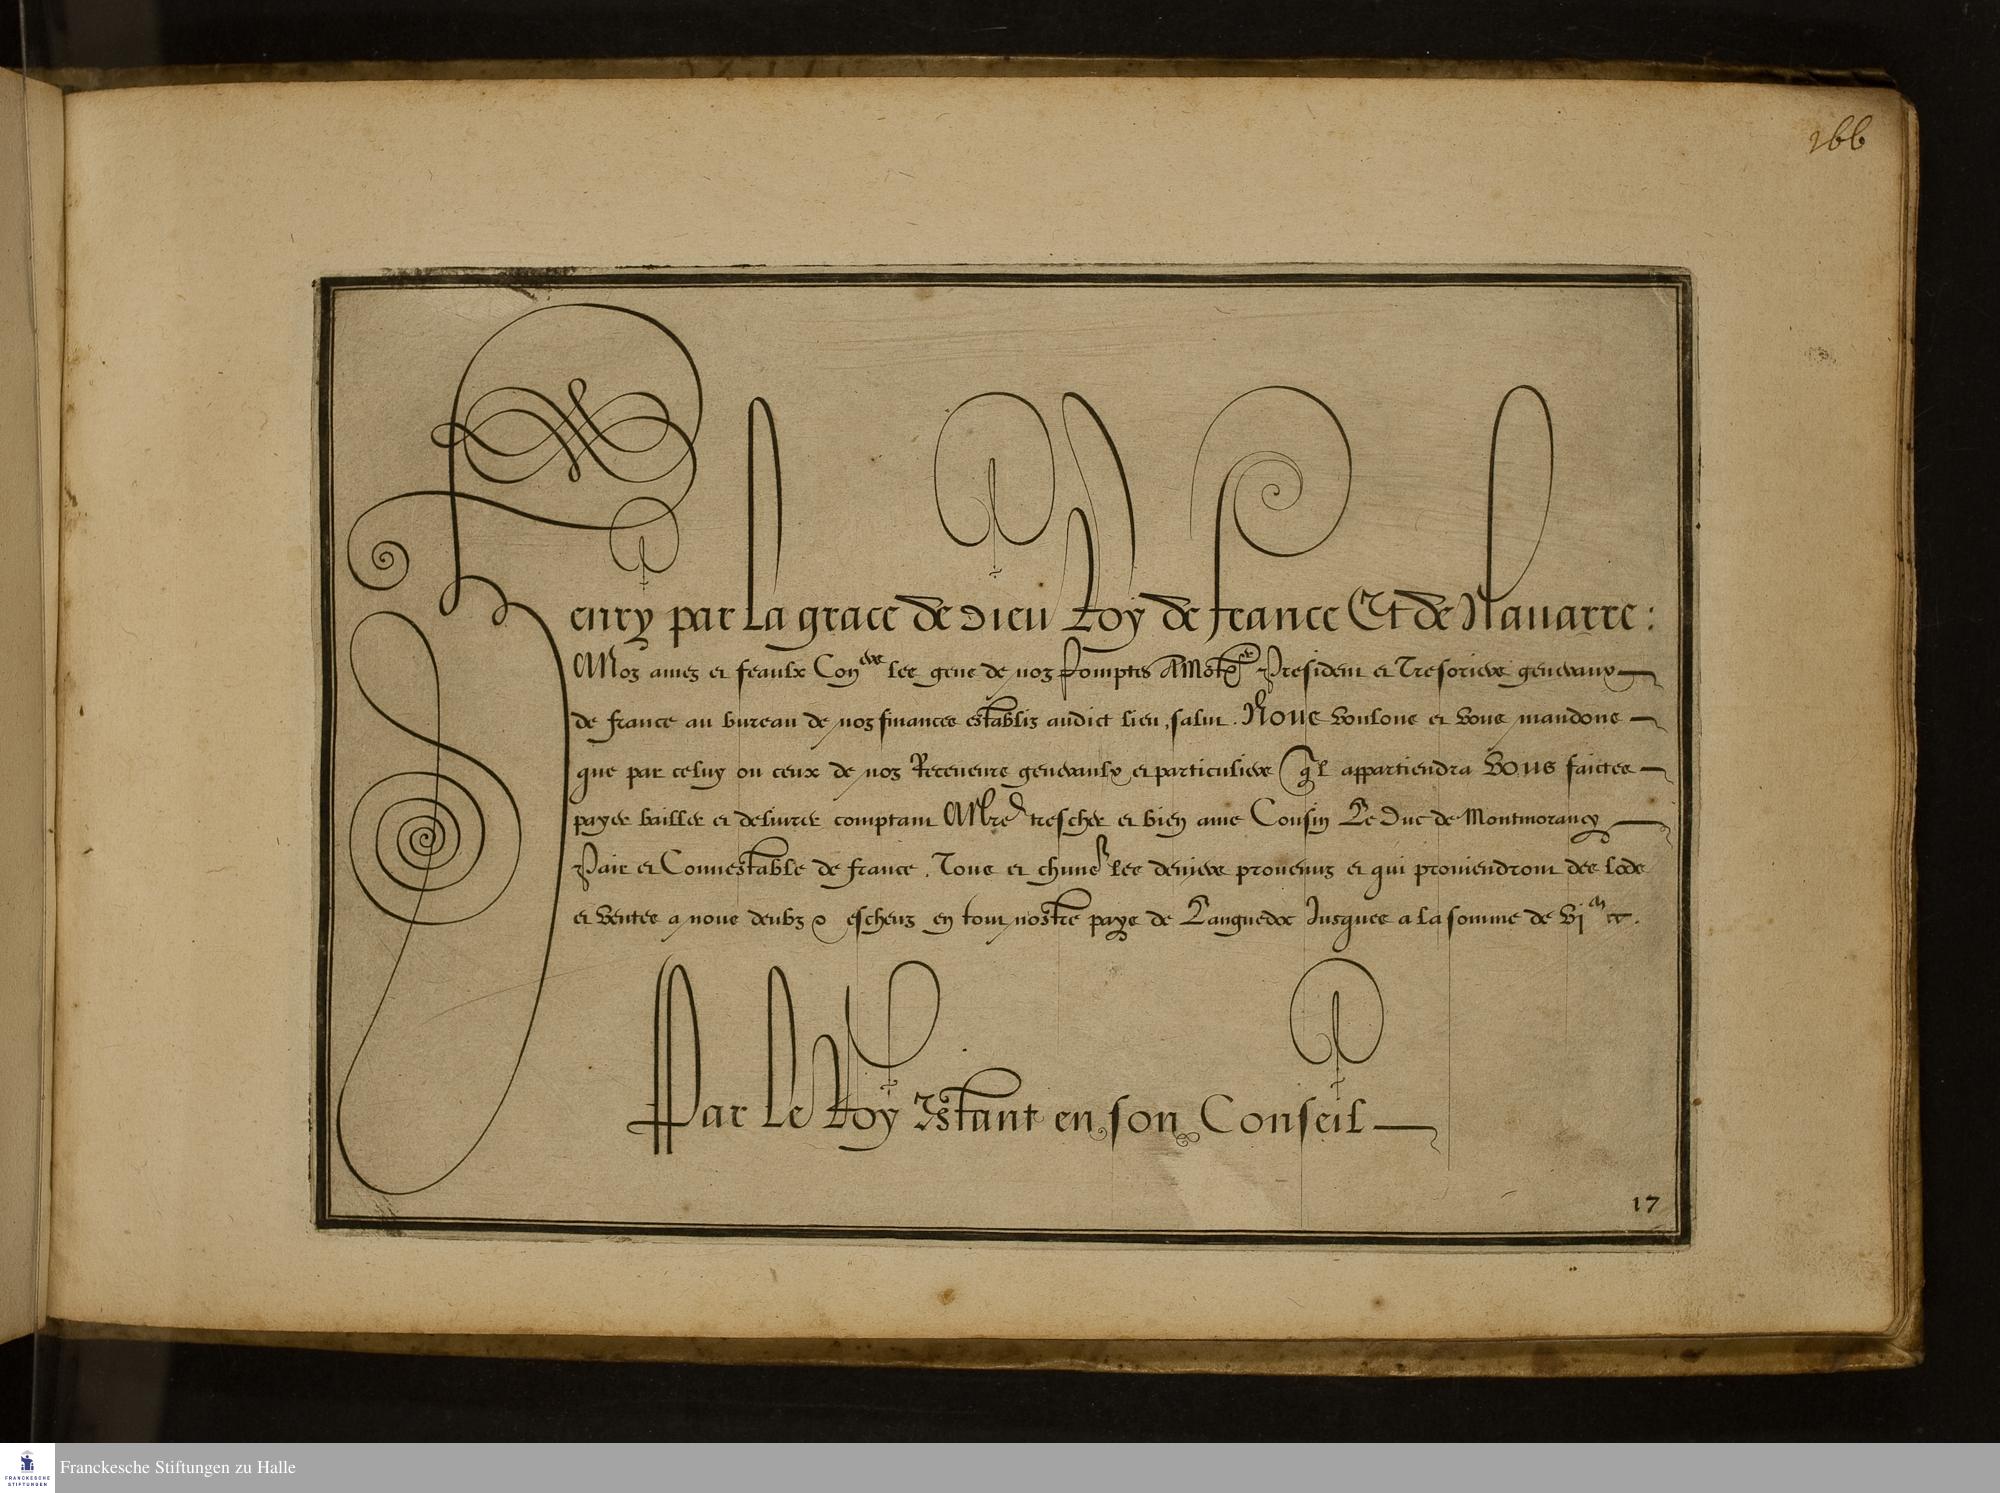 166
Henry par la grace de Dieu Roy de france Et de Nauarre :
A Noz amez et feaulx Con^ers les gens de noz Comptes A President et Tresoriers generaux
de france au bureau de noz finances establiz audict lieu, salut. Nous voulons et vous mandons
que par celuy ou ceux de noz Receueurs generaulx et particuliers q'l appartiendra vous faictes
payer bailler et deliurer comptant A Nre trescher et bien ame Cousin Le Duc de Montmorancy
Pair et Connestable de france. Tous et chuns les deniers prouenuz et qui prouiendront des lodz
et ventes a nous deubz & escheuz en tout nostre pays de Languedoc Jusques a la somme de vj^m cc.
Par Le Roy Estant en son Conseil
17
Franckesche Stiftungen zu Halle
FRANCKESCHE
STIFTUNGEN